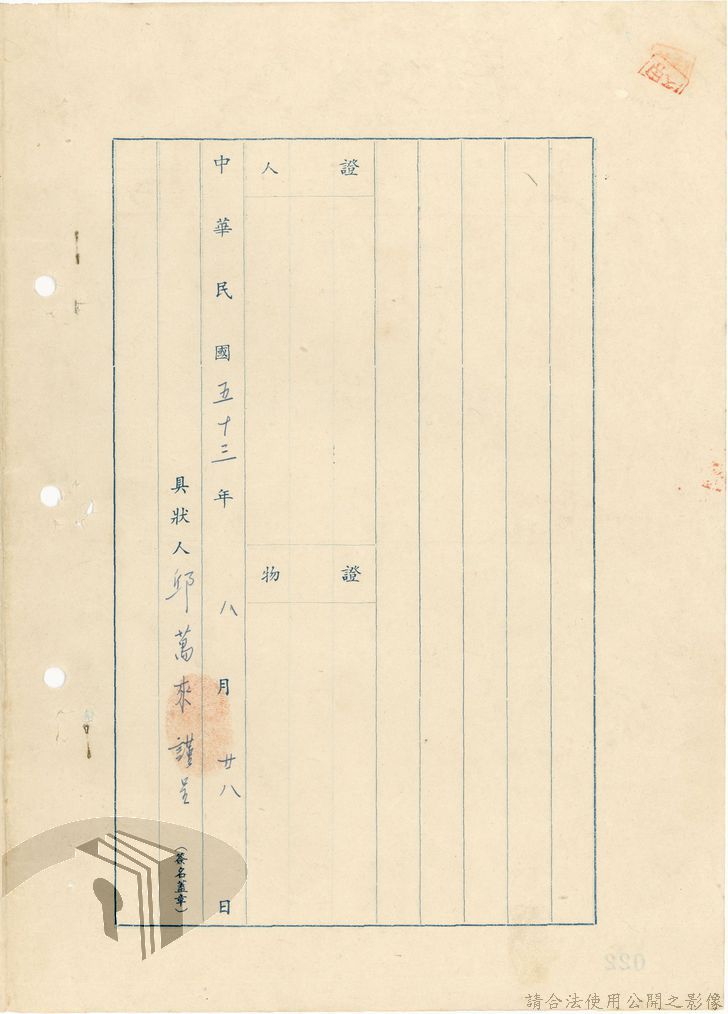 證人
證物
中華民國五十三年八月廿八日
具狀人邱萬來謹呈(簽名蓋章)
022
請合法使用公開之影像